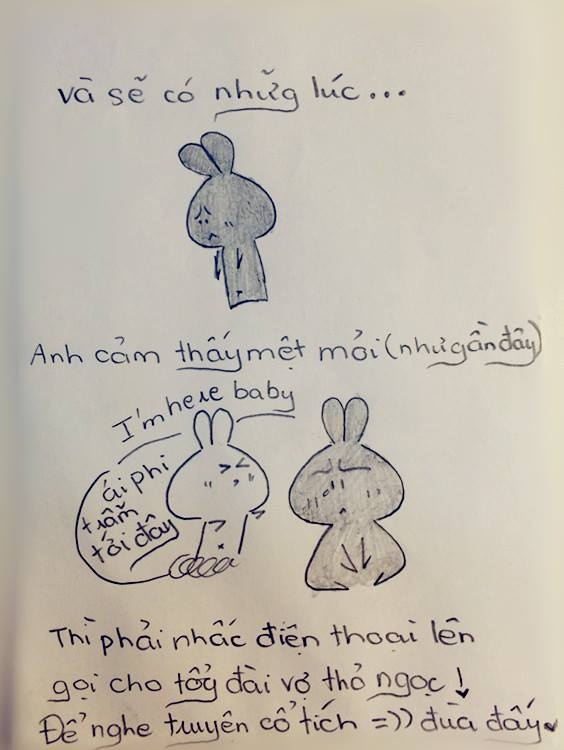 và sẽ có nhữg lúc...
Anh cảm thấy mệt mỏi (như gần đây)
I'm here baby
ái phi
trẫm
tới đây
Thì phải nhấc điện thoại lên
gọi cho tổg đài vợ thỏ ngọc!
Để nghe truyện cổ tích =)) đùa đấy